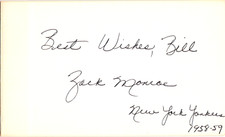 Best Wishes, Bill
Zack Monroe
New York Yankees
1958-59